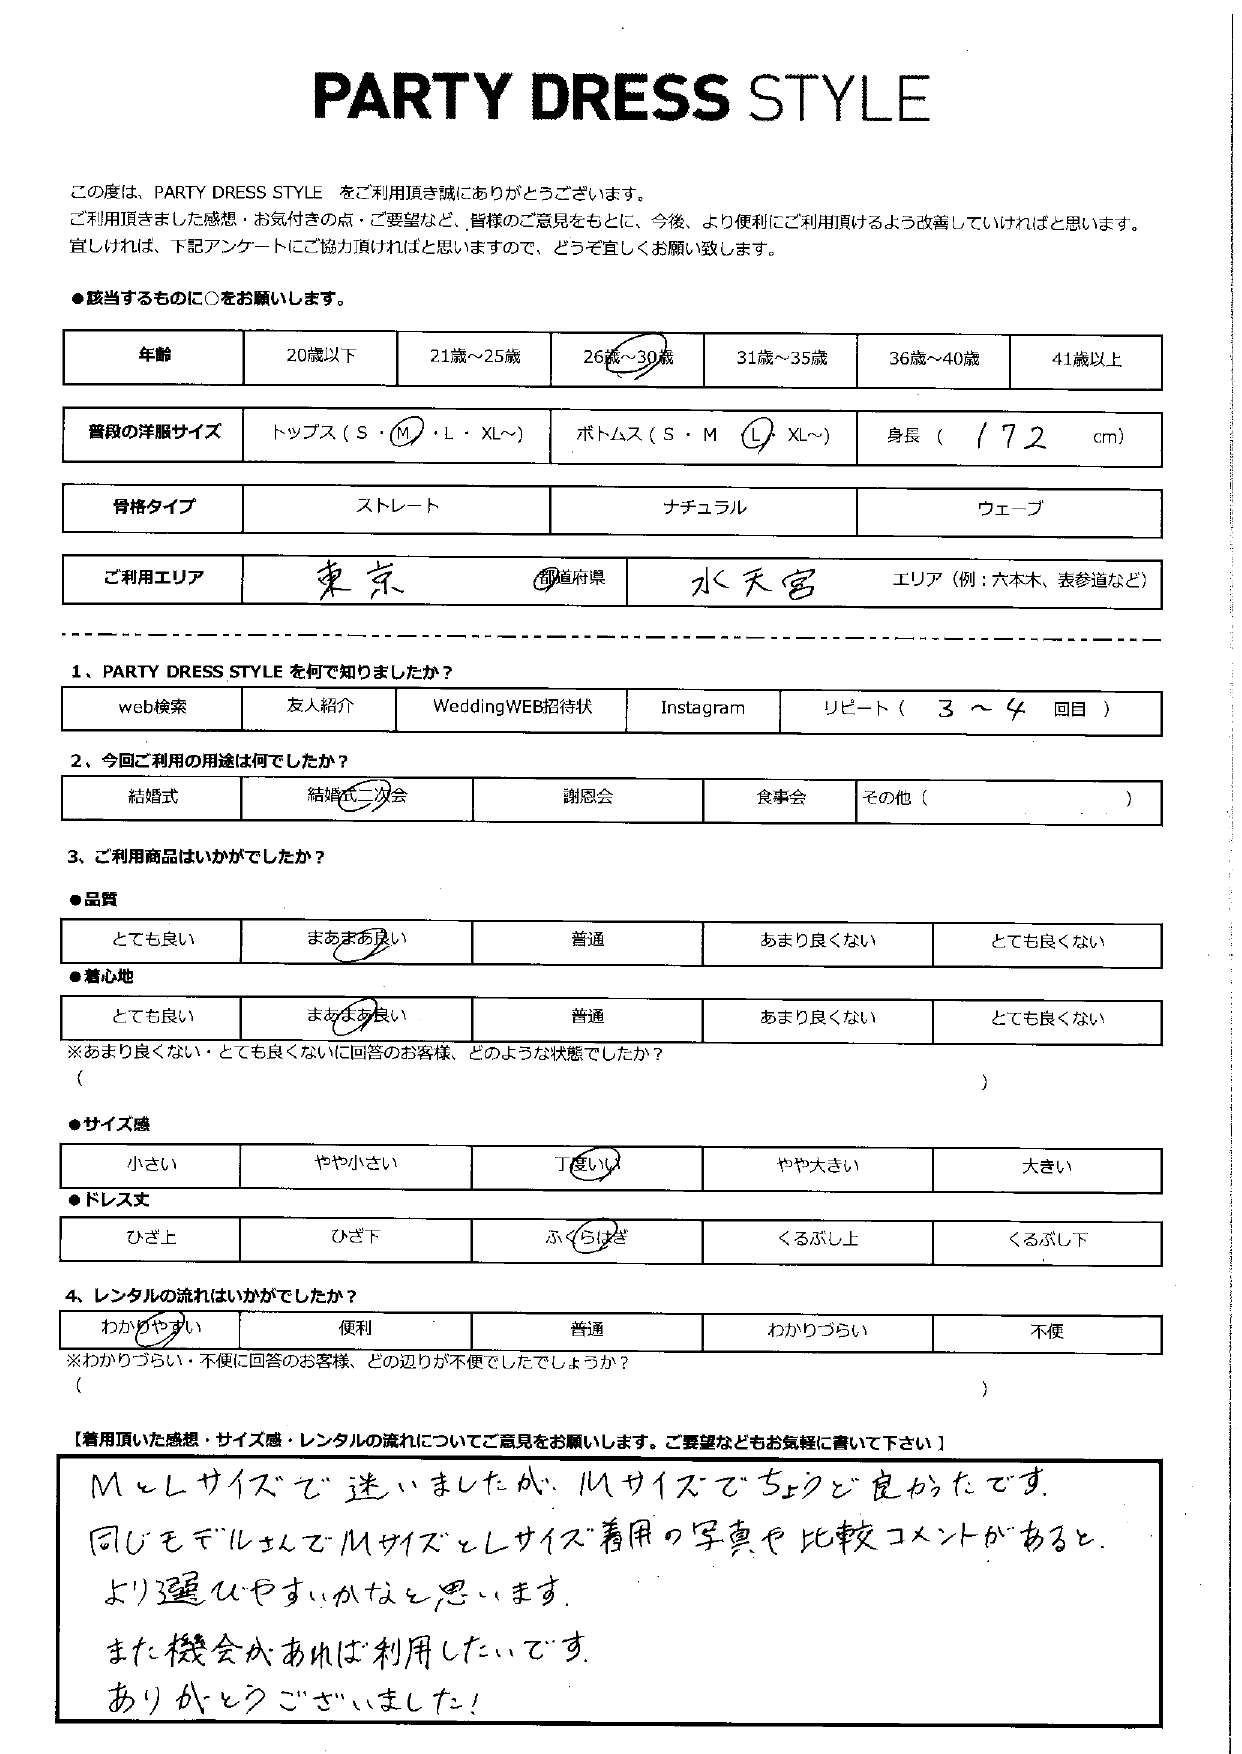 PARTY DRESS STYLE
この度は、PARTY DRESS STYLE をご利用頂き誠にありがとうございます。
ご利用頂きました感想・お気付きの点・ご要望など、皆様のご意見をもとに、今後、より便利にご利用頂けるよう改善していければと思います。
宜しければ、下記アンケートにご協力頂ければと思いますので、どうぞ宜しくお願い致します。
●該当するものに○をお願いします。
年齢 20歳以下 21歳～25歳 26歳～30歳 31歳～35歳 36歳～40歳 41歳以上
普段の洋服サイズ トップス ( S ・ M ・ L ・ XL～) ボトムス ( S ・ M L ・ XL～) 身長 ( 172 cm)
骨格タイプ ストレート ナチュラル ウェーブ
ご利用エリア 東京 都道府県 水天宮 エリア（例：六本木、表参道など）
1、PARTY DRESS STYLE を何で知りましたか？
web検索 友人紹介 WeddingWEB招待状 Instagram リピート（ 3～4 回目 ）
2、今回ご利用の用途は何でしたか？
結婚式 結婚式二次会 謝恩会 食事会 その他（ ）
3、ご利用商品はいかがでしたか？
●品質
とても良い まあまあ良い 普通 あまり良くない とても良くない
●着心地
とても良い まあまあ良い 普通 あまり良くない とても良くない
※あまり良くない・とても良くないに回答のお客様、どのような状態でしたか？
( )
●サイズ感
小さい やや小さい 丁度いい やや大きい 大きい
●ドレス丈
ひざ上 ひざ下 ふくらはぎ くるぶし上 くるぶし下
4、レンタルの流れはいかがでしたか？
わかりやすい 便利 普通 わかりづらい 不便
※わかりづらい・不便に回答のお客様、どの辺りが不便でしたでしょうか？
( )
【着用頂いた感想・サイズ感・レンタルの流れについてご意見をお願いします。ご要望などもお気軽に書いて下さい】
MとLサイズで迷いましたが、Mサイズでちょうど良かったです。
同じモデルさんでMサイズとLサイズ着用の写真や比較コメントがあると、
より選びやすいかなと思います。
また機会があれば利用したいです。
ありがとうございました！